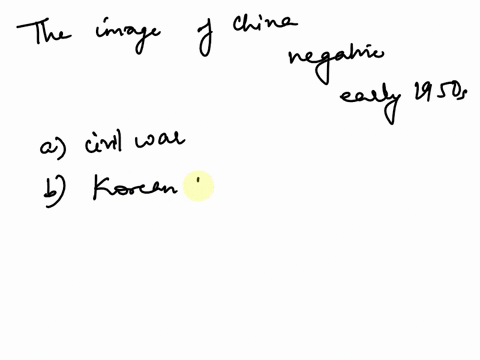 The image of China
negative
early 1950s
a) civil war
b) Korean